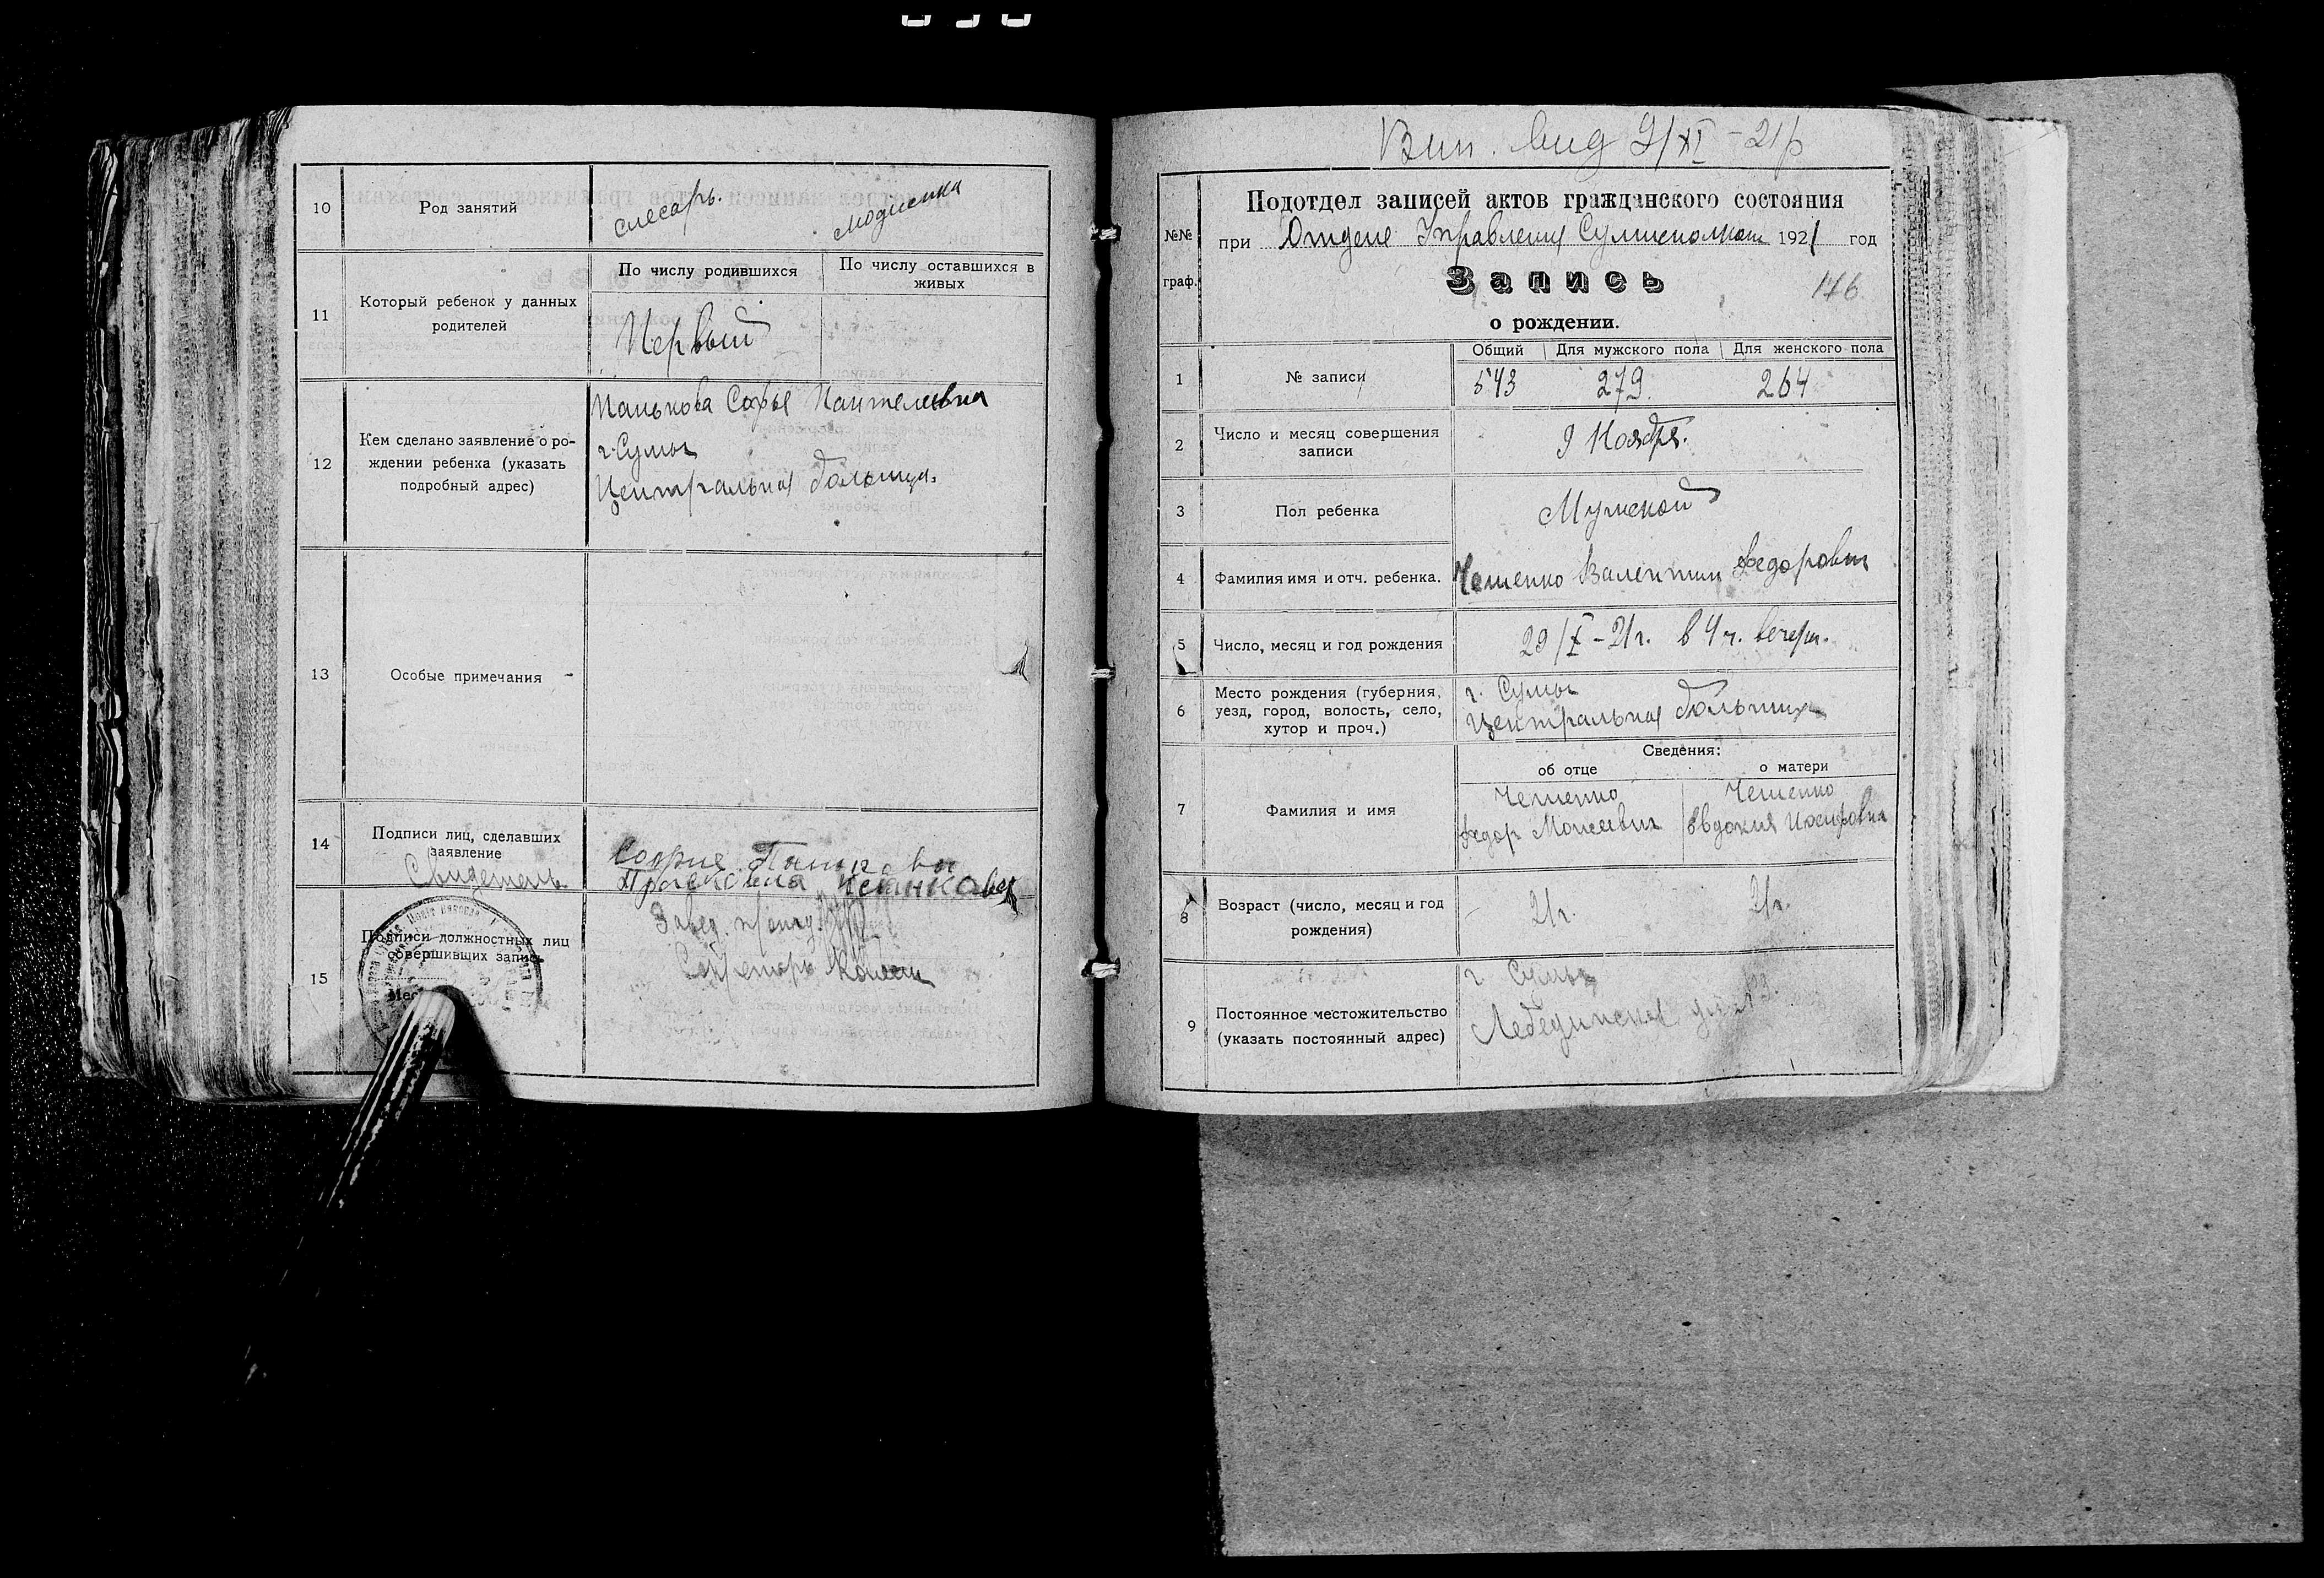 10
Род занятий
слесарь.
модистка
11
Который ребенок у данных
родителей
По числу родившихся
По числу оставшихся в
живых
Первый
12
Кем сделано заявление о ро-
ждении ребенка (указать
подробный адрес)
Панькова Софья Пантелеевна
г. Сумы
Центральная больница.
13
Особые примечания
14
Подписи лиц, сделавших
заявление
Свидетель
София
15
Подписи должностных лиц
совершивших запись
Завед.
Секретарь
Вип. вид 9/XI - 21р
№№
граф.
Подотдел записей актов гражданского состояния
при Отделе Управления Сумисполкома 1921 год
Запись
176
о рождении.
1
№ записи
Общий
Для мужского пола
Для женского пола
543
279.
264
2
Число и месяц совершения
записи
9 Ноября.
3
Пол ребенка
Мужской
4
Фамилия имя и отч. ребенка.
Чешенко Валентин Федорович
5
Число, месяц и год рождения
29/X - 21г. в 4 ч. вечера.
6
Место рождения (губерния,
уезд, город, волость, село,
хутор и проч.)
г. Сумы
Центральная больница
7
Фамилия и имя
Сведения:
об отце
о матери
Чешенко
Федор Моисеевич
Чешенко
Евдокия
8
Возраст (число, месяц и год
рождения)
21г.
21г.
9
Постоянное местожительство
(указать постоянный адрес)
г. Сумы
Лебединская